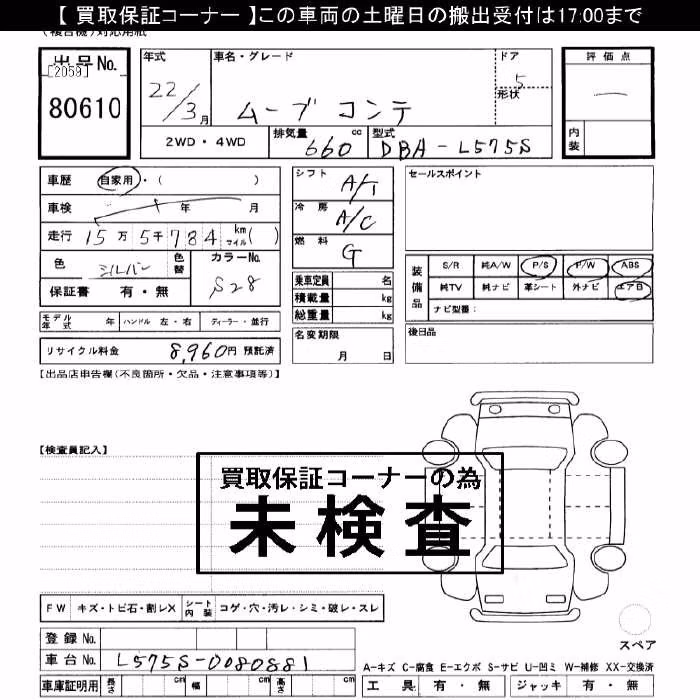 【 買取保証コーナー 】この車両の土曜日の搬出受付は17:00まで
(複合機)対応用紙
出品No.
[2059]
80610
年式
22/3月
車名・グレード
ムーブ コンテ
ドア
5
形状
評価点
—
内装
2WD・4WD
排気量 660 cc
型式 DBA-L575S
車歴 自家用・( )
車検 年 月
走行 15万5千784 km マイル( )
色 シルバー 色替
カラーNo.
S28
保証書 有・無
シフト A/T
冷房 A/C
燃料 G
乗車定員 名
積載量 kg
総重量 kg
セールスポイント
装備品
S/R 純A/W P/S P/W ABS
純TV 純ナビ 革シート 外ナビ エアB
ナビ型番:
モデル年式 年 ハンドル 左・右 ディーラー・並行
リサイクル料金 8,960円 預託済
名変期限
月 日
後日品
【出品店申告欄(不良箇所・欠品・注意事項等)】
【検査員記入】
買取保証コーナーの為
未検査
FW キズ・トビ石・割レX シート内装 コゲ・穴・汚レ・シミ・破レ・スレ
スペア
登録No.
車台No. L575S-0080881
A-キズ C-腐食 E-エクボ S-サビ U-凹ミ W-補修 XX-交換済
車庫証明用 長さ cm 幅 cm 高さ cm
工具 有・無 ジャッキ 有・無